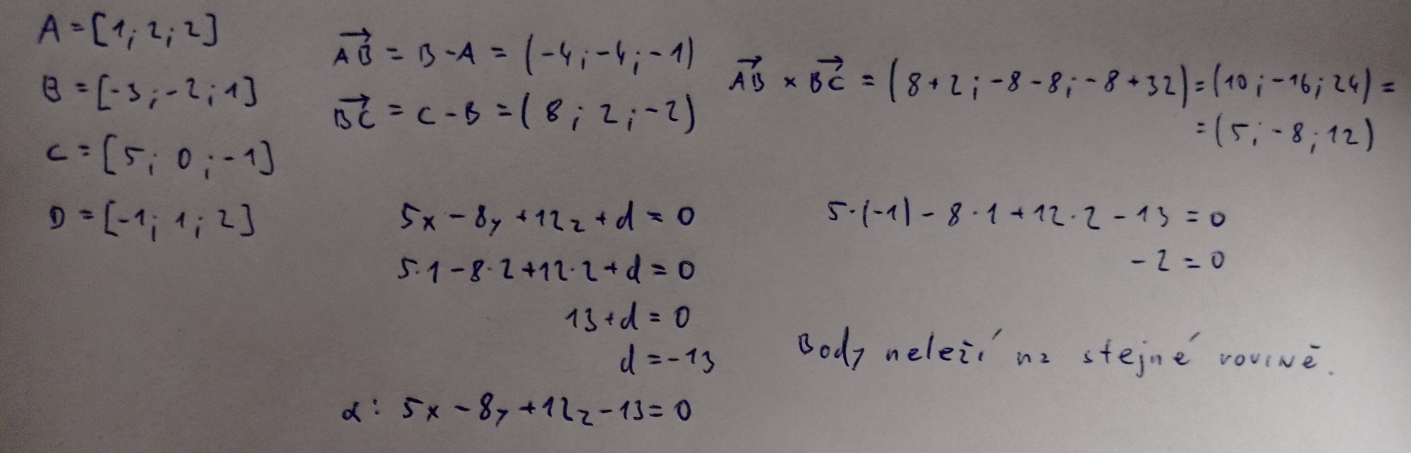 A = [1; 2; 2]
B = [-3; -2; 1]
C = [5; 0; -1]
D = [-1; 1; 2]
AB = B - A = (-4; -4; -1)
BC = C - B = (8; 2; -2)
AB × BC = (8 + 2; -8 - 8; -8 + 32) = (10; -16; 24) =
= (5; -8; 12)
5x - 8y + 12z + d = 0
5·1 - 8·2 + 12·2 + d = 0
13 + d = 0
d = -13
α: 5x - 8y + 12z - 13 = 0
5·(-1) - 8·1 + 12·2 - 13 = 0
-2 = 0
Body neleží na stejné rovině.